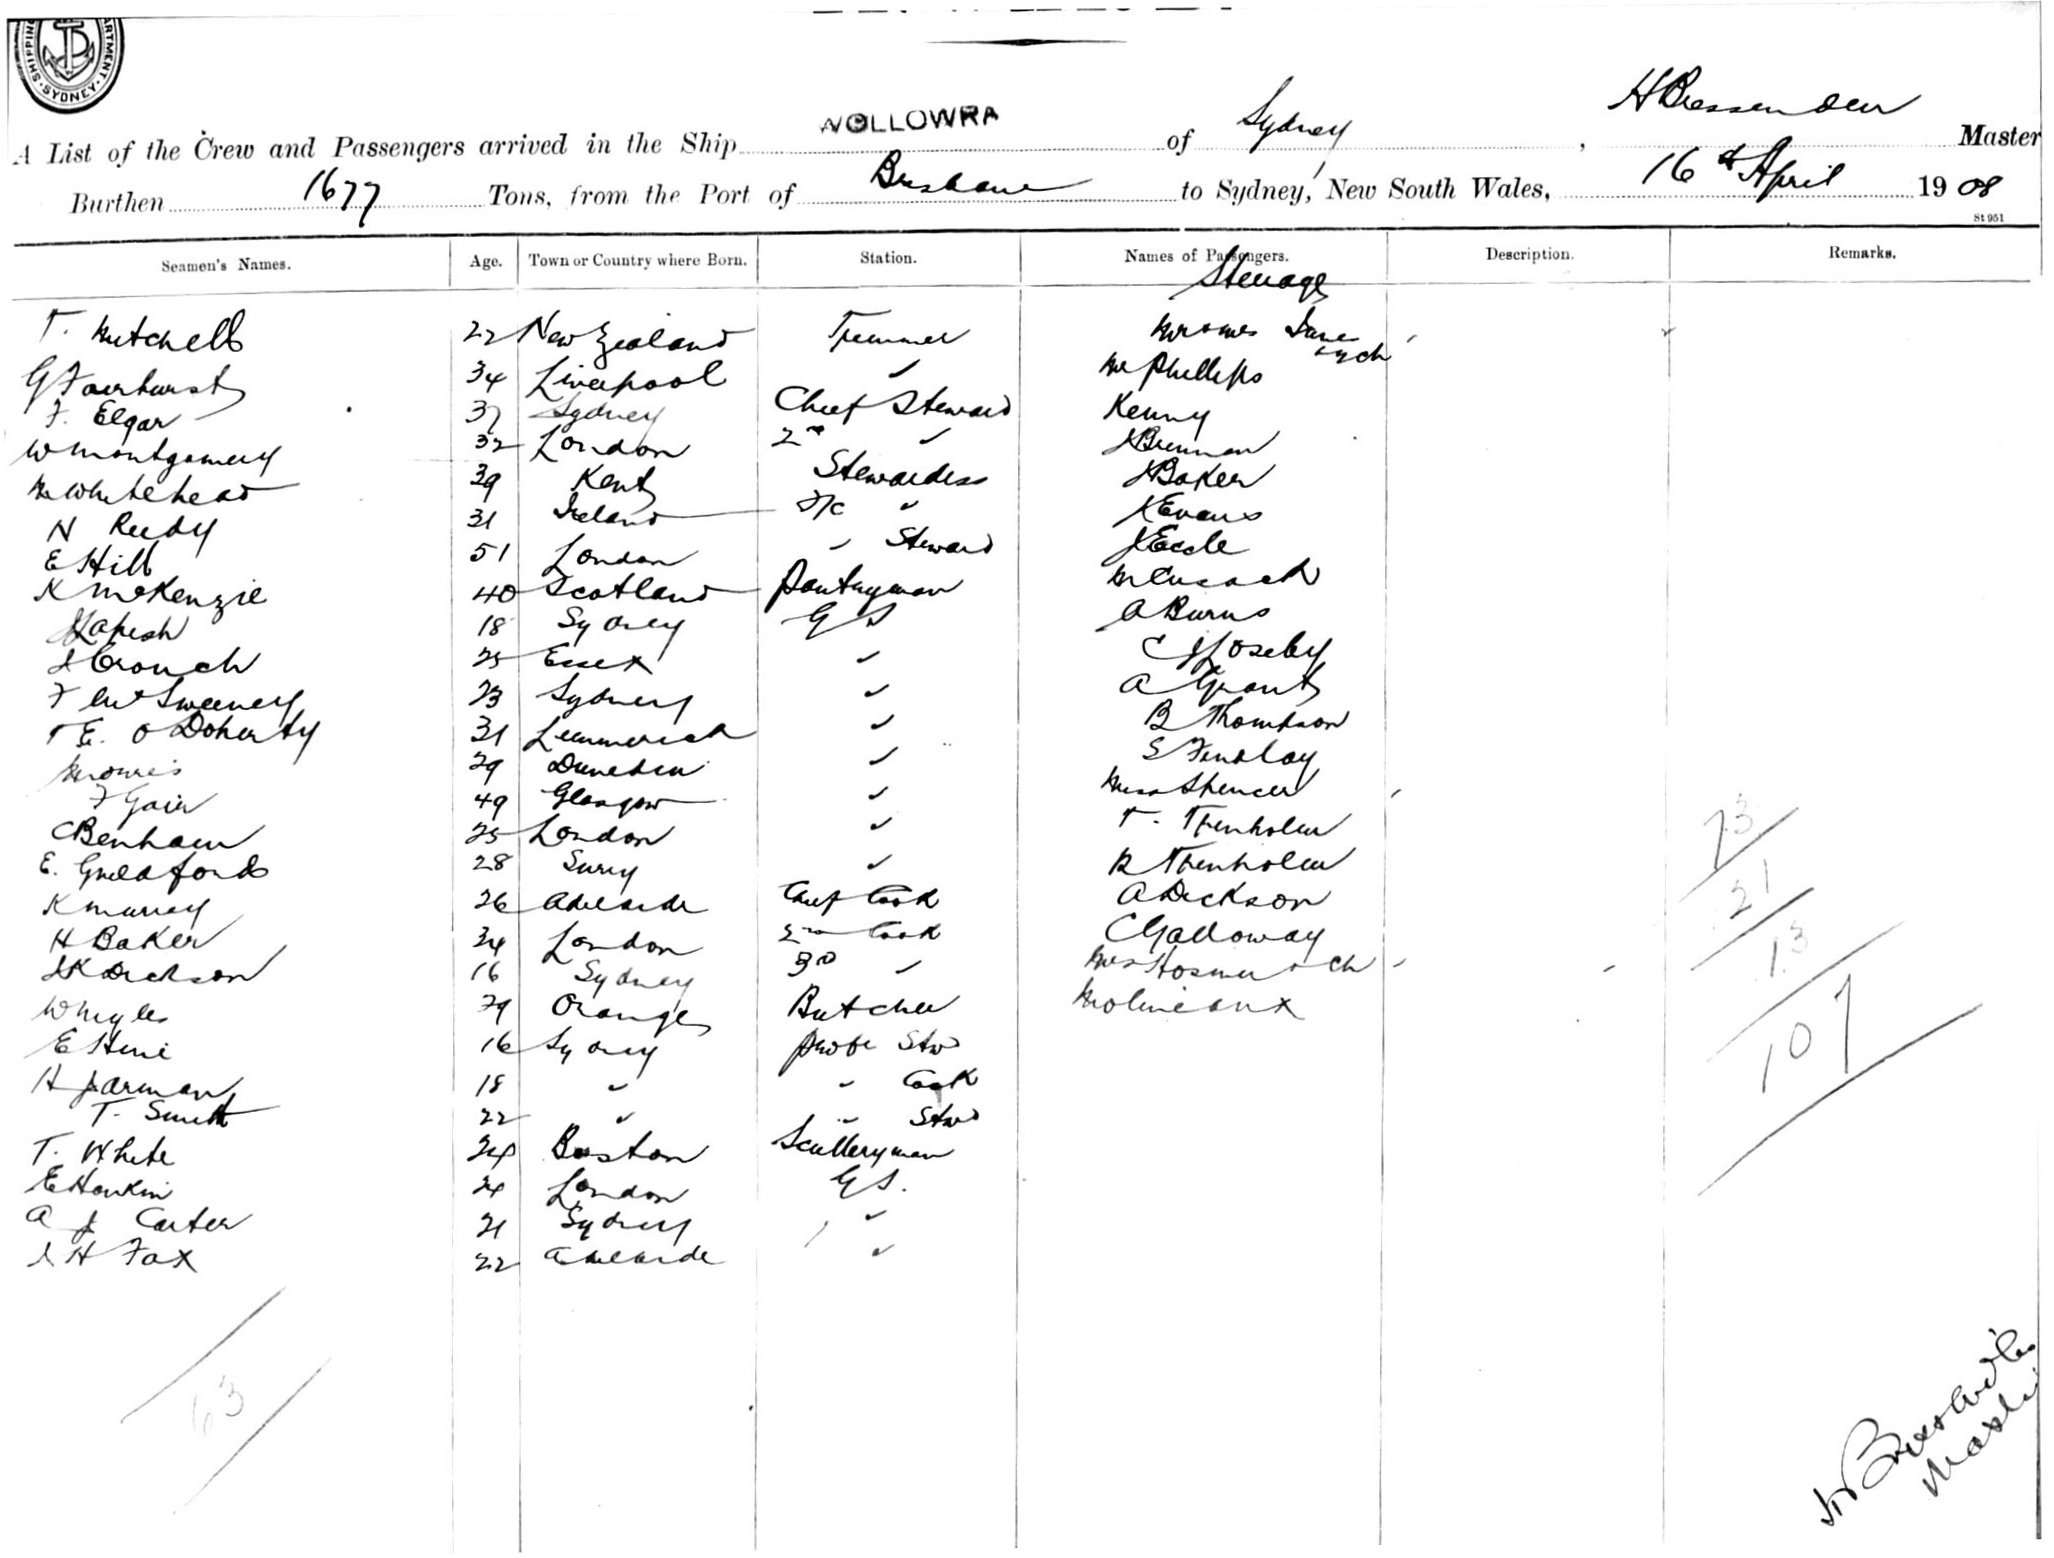 SHIPPING DEPARTMENT SYDNEY
WOLLOWRA
A List of the Crew and Passengers arrived in the Ship WOLLOWRA of Sydney, H Master
Burthen 1677 Tons, from the Port of Brisbane to Sydney, New South Wales, 16th April 1908
St 951
Seamen's Names. Age. Town or Country where Born. Station. Names of Passengers. Description. Remarks.
Steerage
T. Mitchell 22 New Zealand Trimmer
G Fairhurst 34 Liverpool " Mr Phillips
F. Elgar 37 Sydney Chief Steward Kenny
W Montgomery 32 London 2nd " J Brennan
M Whitehead 39 Kent Stewardess J Baker
N Reidy 31 Ireland F/C " J Evans
E Hill 51 London " Steward J Eccle
K McKenzie 40 Scotland Pantryman M Cusack
18 Sydney G S A Burns
J Crouch 25 Essex " C J Loseby
F Sweeney 23 Sydney " A Grant
T E. O Doherty 31 Limmerick " B Thompson
29 Dunedin " S Findlay
F Gair 49 Glasgow " Miss Spencer
C Benham 25 London " T. Trenholm
E. Guildford 28 Surry " R Trenholm
K Murray 26 Adelaide Chief Cook A Dickson
H Baker 34 London 2nd Cook C Galloway
J K Dickson 16 Sydney 3rd " Mrs Hosmer + ch
W Myles 29 Orange Butcher Molineaux
E 16 Sydney Probr Stwd
H Jarman 18 " " Cook
T. Smith 22 " " Stwd
T. White 24 Boston Sculleryman
E Hawkin 24 London G S.
A J Carter 21 Sydney "
J H Fox 22 Adelaide "
73
21
13
107
63
Master